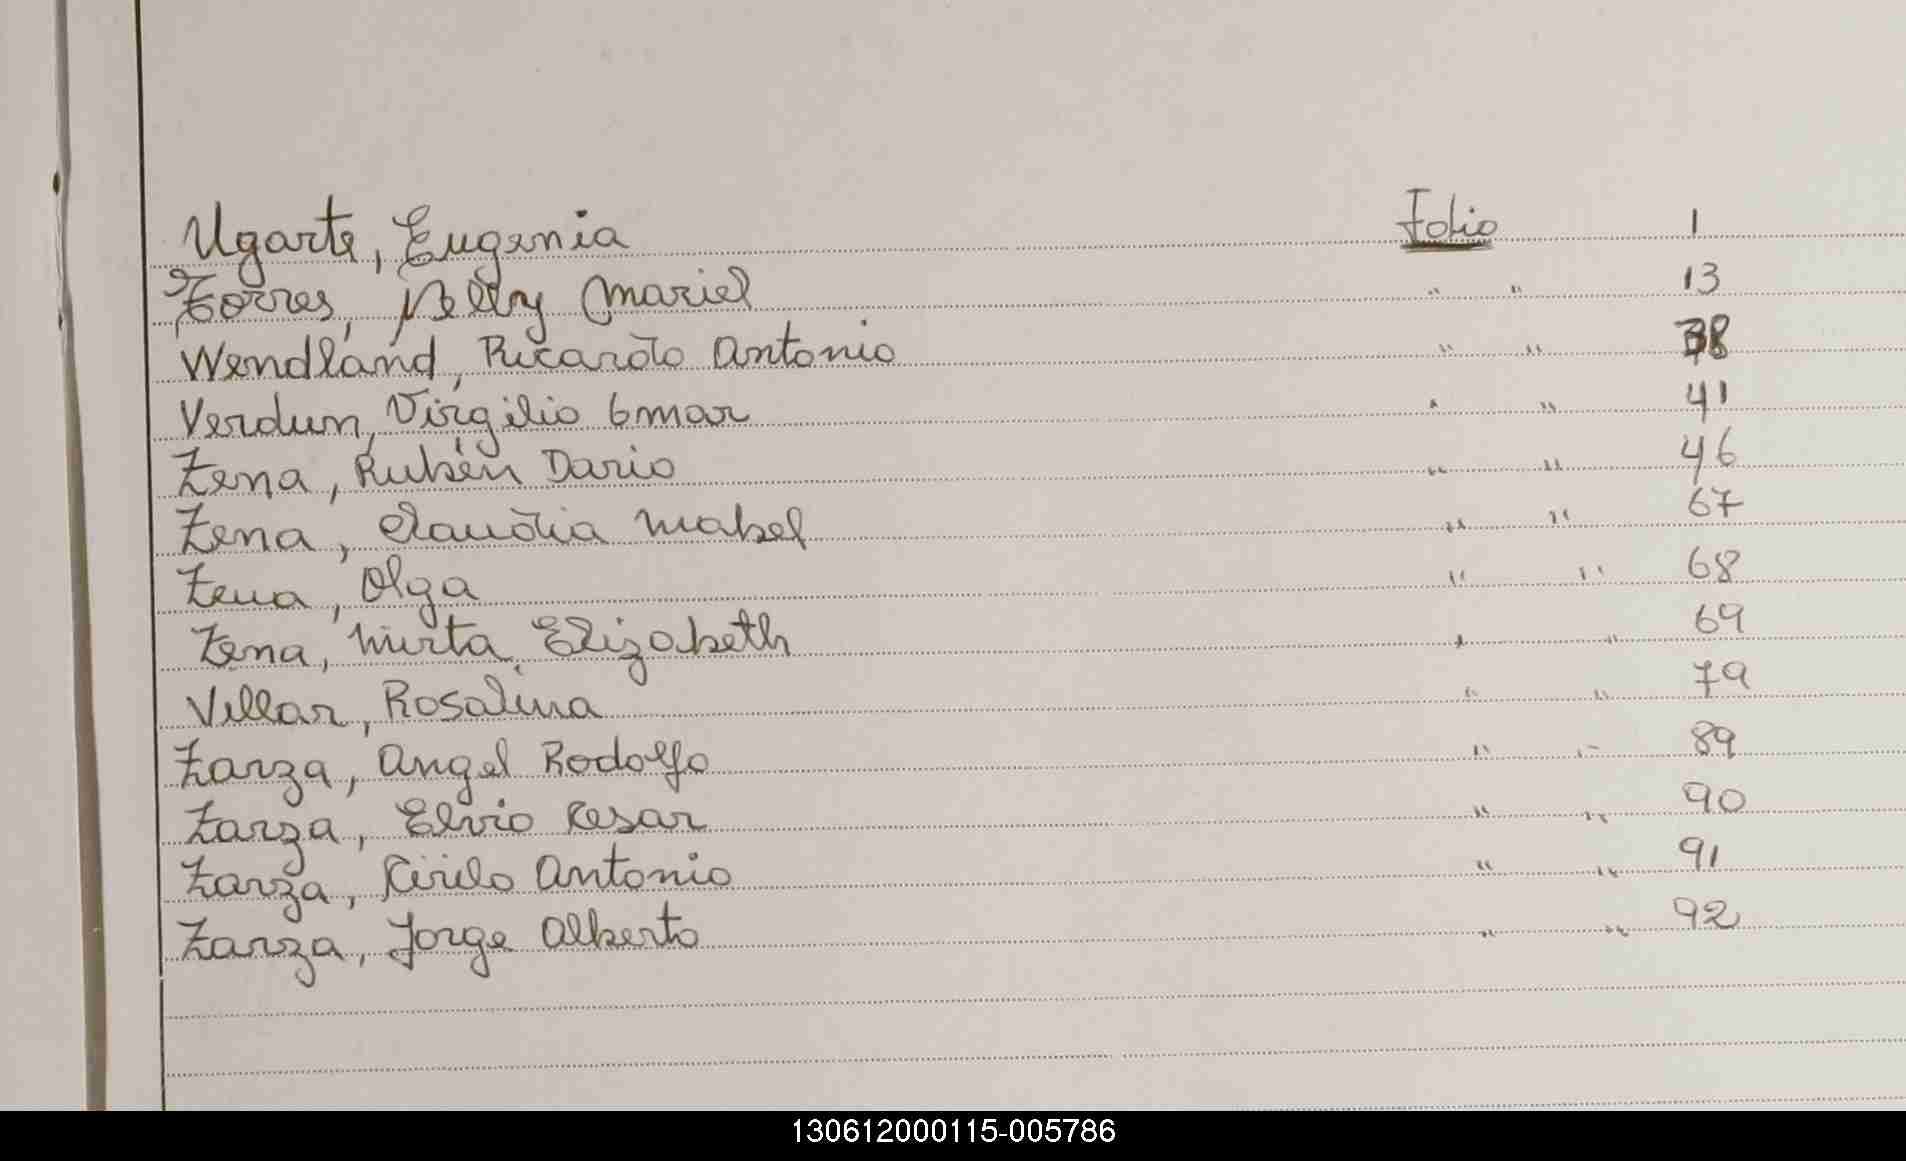 Ugarte, Eugenia Folio 1
Torres, Nelly Mariel " " 13
Wendland, Ricardo Antonio " " 38
Verdun, Virgilio Omar " " 41
Zena, Rubén Dario " " 46
Zena, Claudia Mabel " " 67
Zena, Olga " " 68
Zena, Mirta Elizabeth " " 69
Villar, Rosalina " " 79
Zarza, Angel Rodolfo " " 89
Zarza, Elvio Cesar " " 90
Zarza, Cirilo Antonio " " 91
Zarza, Jorge Alberto " " 92
130612000115-005786